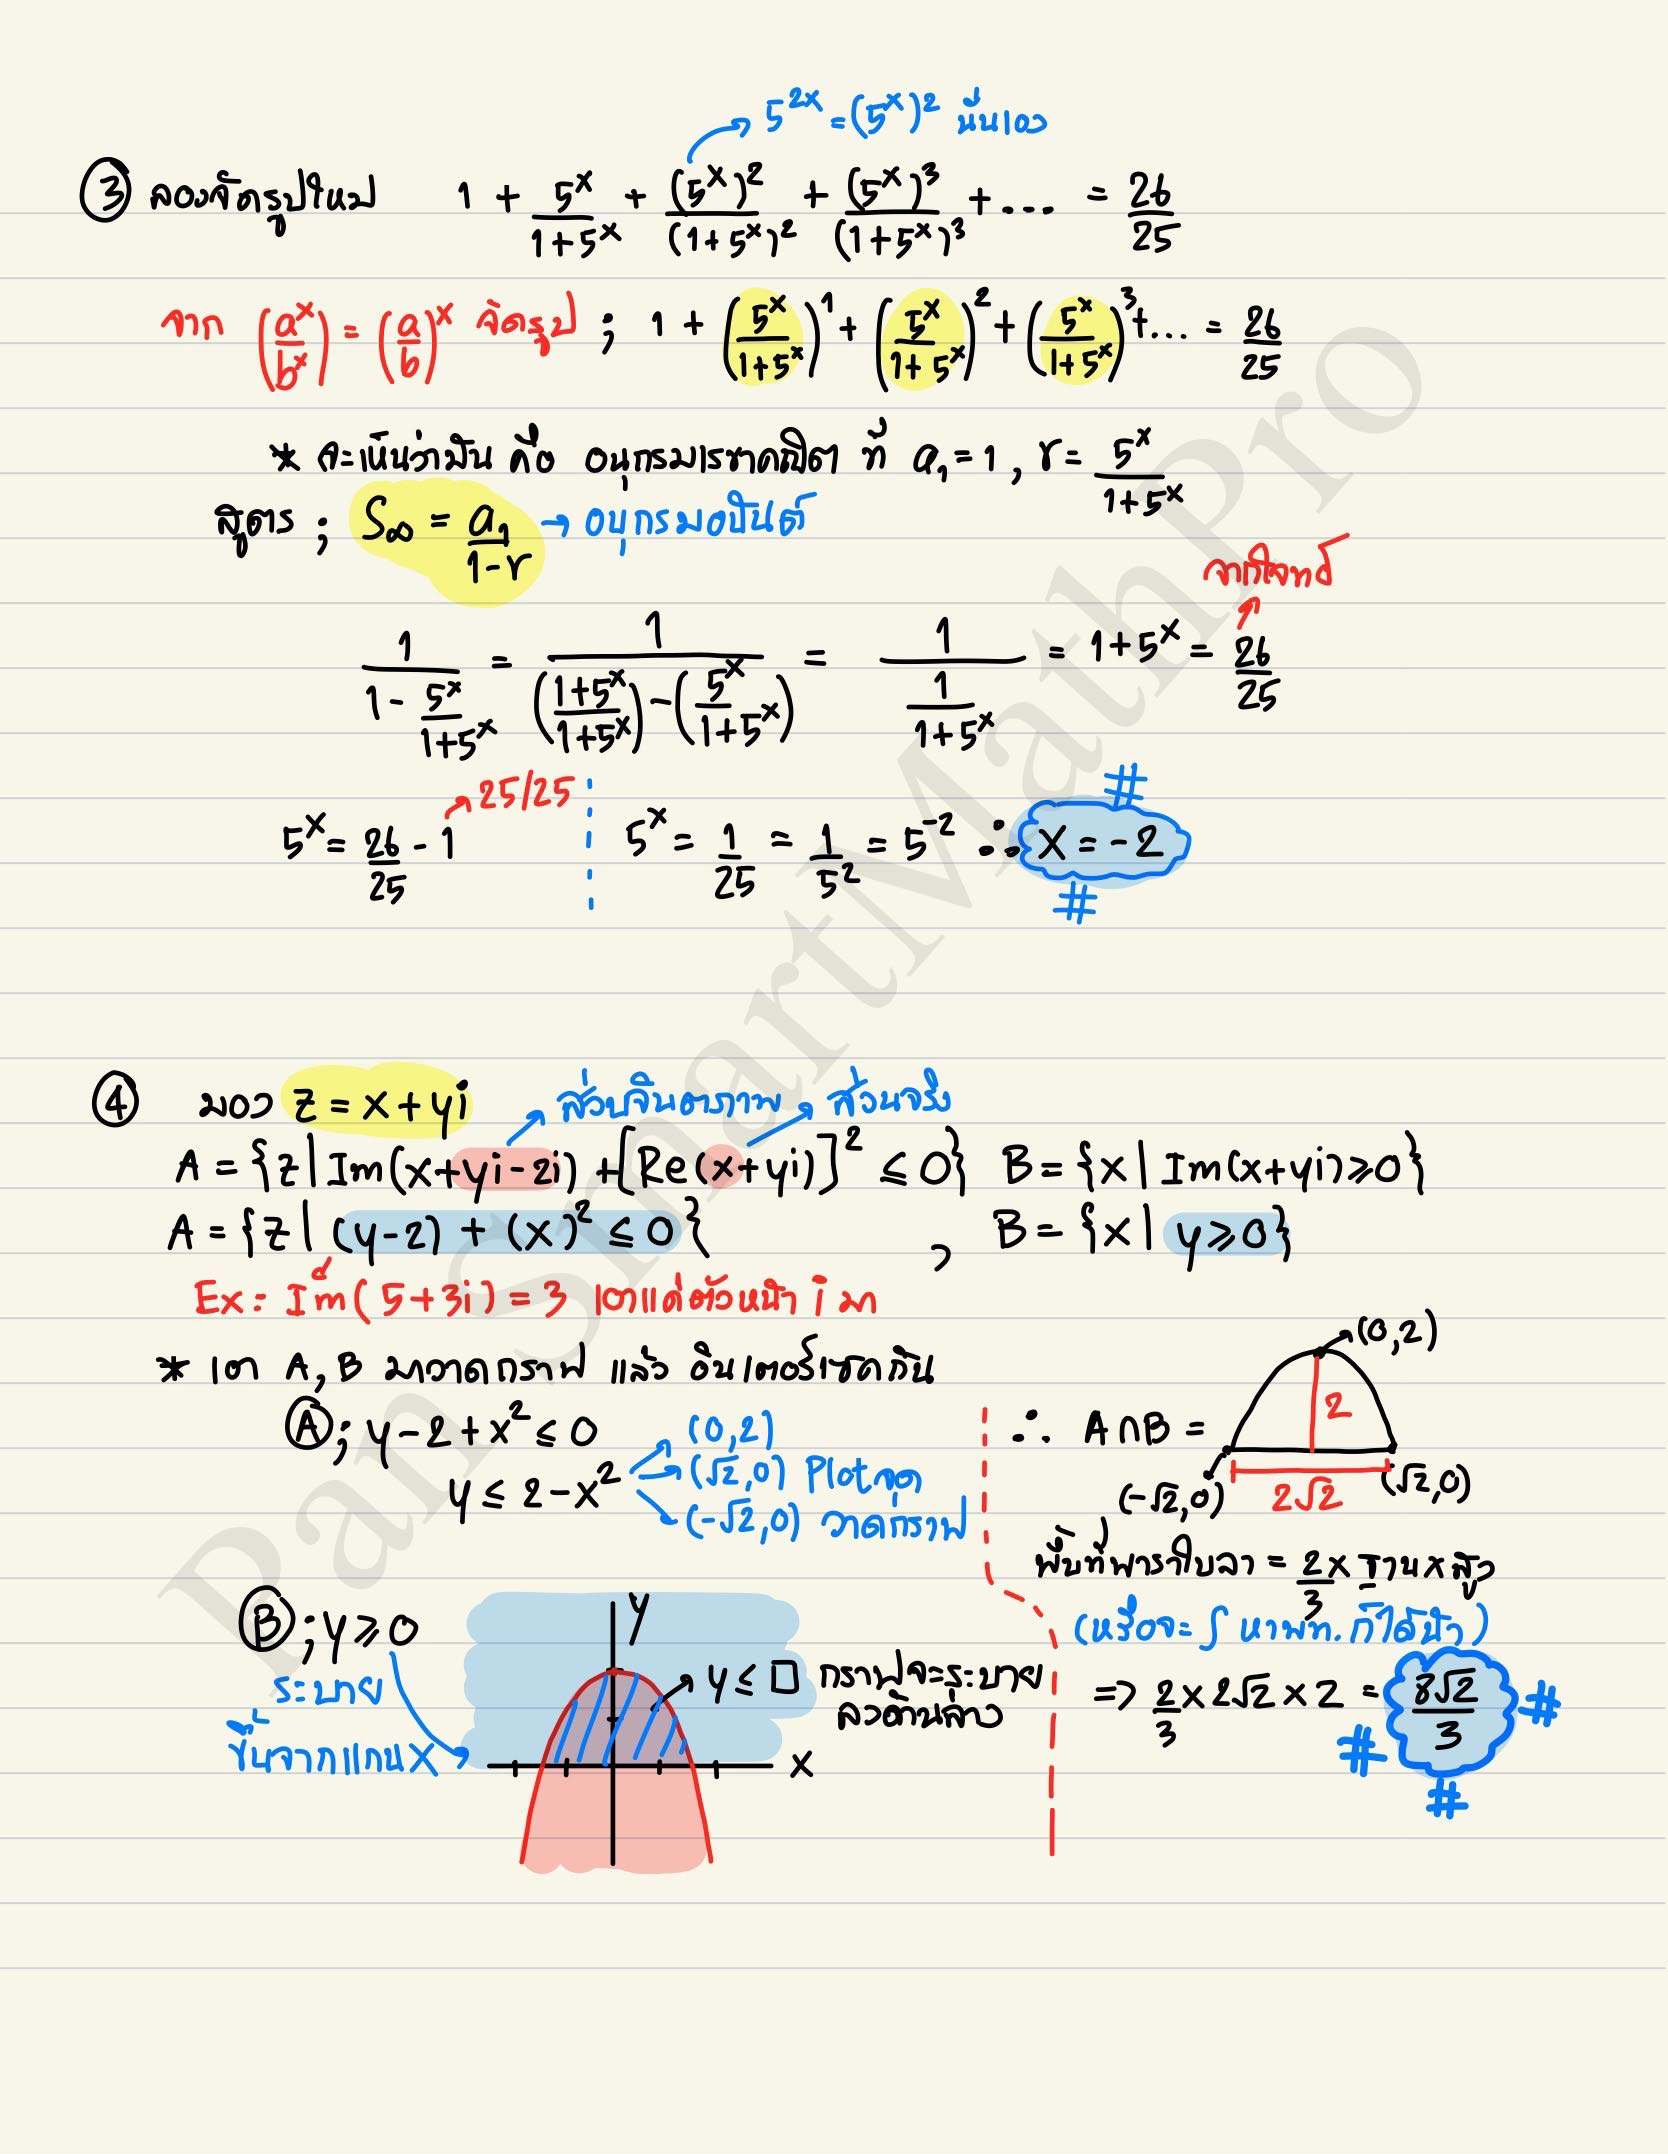 5^{2x} = (5^x)^2 นั่นเอง
③ ลองจัดรูปใหม่ 1 + \frac{5^x}{1+5^x} + \frac{(5^x)^2}{(1+5^x)^2} + \frac{(5^x)^3}{(1+5^x)^3} + ... = \frac{26}{25}
จาก (\frac{a^x}{b^x}) = (\frac{a}{b})^x จัดรูป ; 1 + (\frac{5^x}{1+5^x})^1 + (\frac{5^x}{1+5^x})^2 + (\frac{5^x}{1+5^x})^3 + ... = \frac{26}{25}
* จะเห็นว่ามัน คือ อนุกรมเรขาคณิต ที่ a_1 = 1, r = \frac{5^x}{1+5^x}
สูตร ; S_∞ = \frac{a_1}{1-r} → อนุกรมอนันต์
จากโจทย์
\frac{1}{1 - \frac{5^x}{1+5^x}} = \frac{1}{(\frac{1+5^x}{1+5^x}) - (\frac{5^x}{1+5^x})} = \frac{1}{\frac{1}{1+5^x}} = 1+5^x = \frac{26}{25}
25/25
5^x = \frac{26}{25} - 1 5^x = \frac{1}{25} = \frac{1}{5^2} = 5^{-2} ∴ x = -2 # #
④ มอง z = x + yi
ส่วนจินตภาพ ส่วนจริง
A = {z | Im(x+yi-2i) + [Re(x+yi)]^2 ≤ 0} B = {x | Im(x+yi) ≥ 0}
A = {z | (y-2) + (x)^2 ≤ 0} , B = {x | y ≥ 0}
Ex: Im(5+3i) = 3 เอาแค่ตัวหน้า i มา
* เอา A, B มาวาดกราฟ แล้ว อินเตอร์เซคกัน
Ⓐ ; y - 2 + x^2 ≤ 0
y ≤ 2 - x^2
(0,2)
(√2,0) Plot จุด
(-√2,0) วาดกราฟ
Ⓑ ; y ≥ 0
ระบาย
ขึ้นจากแกน X
y
x
y ≤ □ กราฟจะระบาย
ลงด้านล่าง
∴ A∩B =
(0,2)
2
(-√2,0) 2√2 (√2,0)
พื้นที่พาราโบลา = \frac{2}{3} x ฐาน x สูง
(หรือจะ ∫ หาพท. ก็ได้น้า)
=> \frac{2}{3} x 2√2 x 2 = \frac{8√2}{3} # # #
Pan SmartMathPro